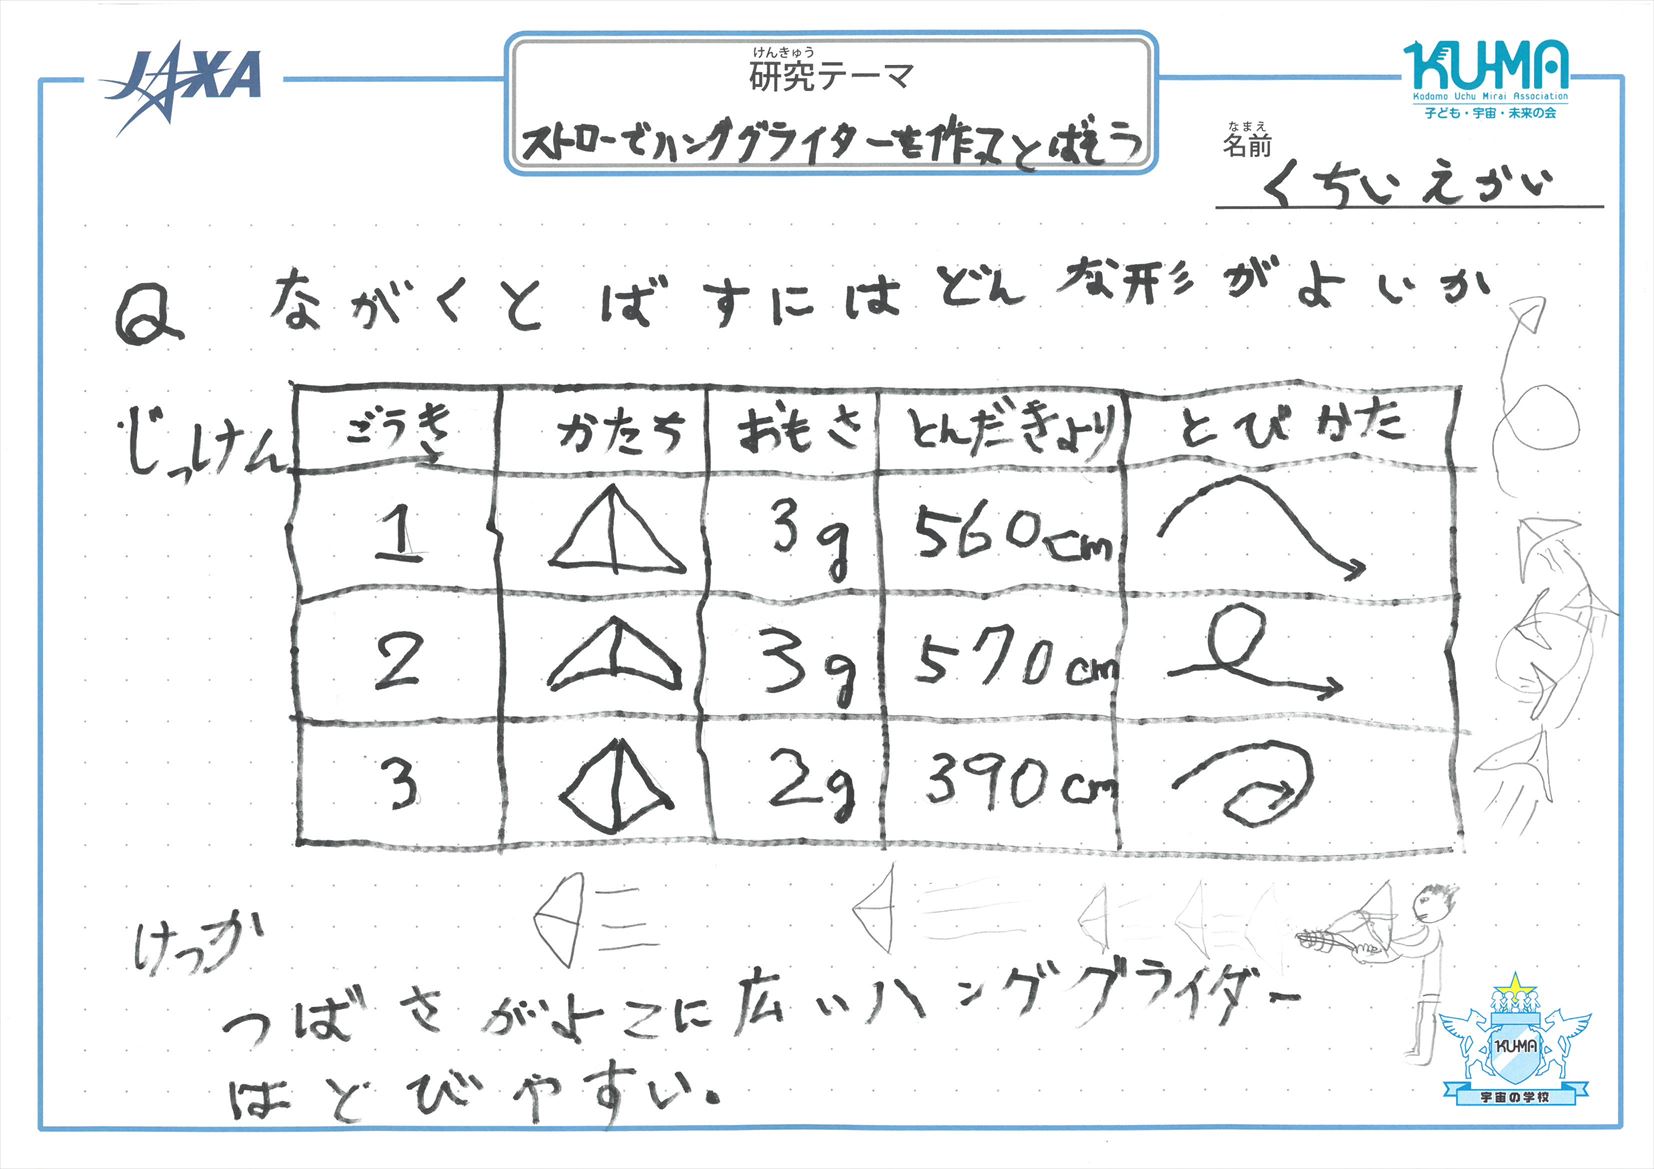 JAXA
けんきゅう
研究テーマ
ストローでハンググライターを作ってとばそう
KU-MA
Kodomo Uchu Mirai Association
子ども・宇宙・未来の会
なまえ
名前
くちいえかい
Q ながくとばすにはどんな形がよいか
じっけん
ごうき かたち おもさ とんだきょり とびかた
1 3g 560cm
2 3g 570cm
3 2g 390cm
けっか
つばさがよこに広いハンググライダー
はとびやすい。
KU-MA
宇宙の学校